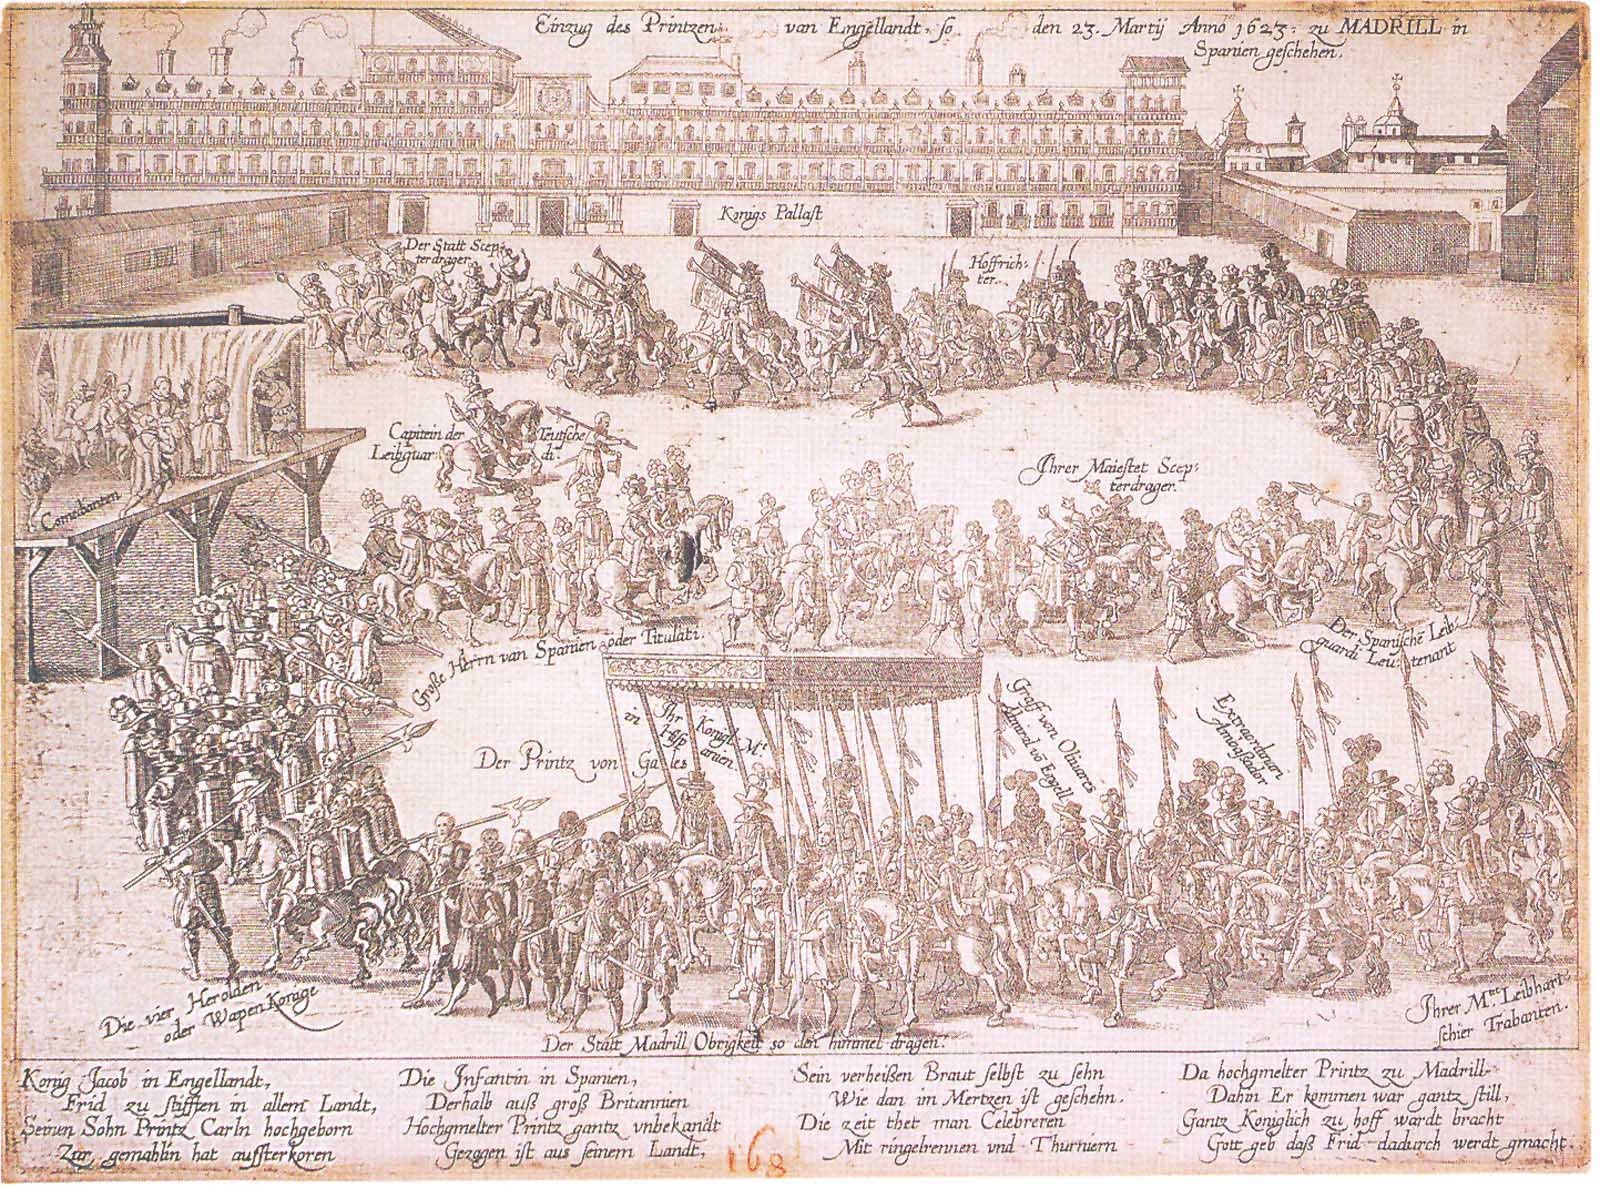 Einzug des Printzen van Engellandt, so den 23. Martij Anno 1623. zu MADRILL in
Spanien geschehen.
Konigs Pallast
Der Statt Scep-
terdrager.
Hoffrich-
ter.
Capitein der
Leibguar
Teutsche
di
Ihrer Maiestet Scep-
terdrager.
Comedianten
Große Herrn van Spanien oder Titulati.
Der Spanische Leib
guardi Leutenant
Der Printz von Galles
Ihr Konigl. Mt.
in Hispanien
Graff von Olivares
Extraordenari
Ambaßador
Die vier Herolden
oder Wapen Konige
Der Statt Madrill Obrigkeit so den himmel dragen.
Ihrer Mtet Leibhart
schier Trabanten.
Konig Jacob in Engellandt,
Frid zu stifften in allem Landt,
Seinen Sohn Printz Carln hochgeborn
Zur gemahlin hat aussterkoren
Die Infantin in Spanien,
Derhalb auß groß Britannien
Hochgmelter Printz gantz vnbekandt
Gezogen ist aus seinem Landt,
Sein verheißen Braut selbst zu sehn
Wie dan im Mertzen ist geschehn.
Die zeit thet man Celebreren
Mit ringelrennen vnd Thurniern
Da hochgmelter Printz zu Madrill
Dahin Er kommen war gantz still,
Gantz Koniglich zu hoff wardt bracht
Gott geb daß Frid dadurch werdt gmacht.
168